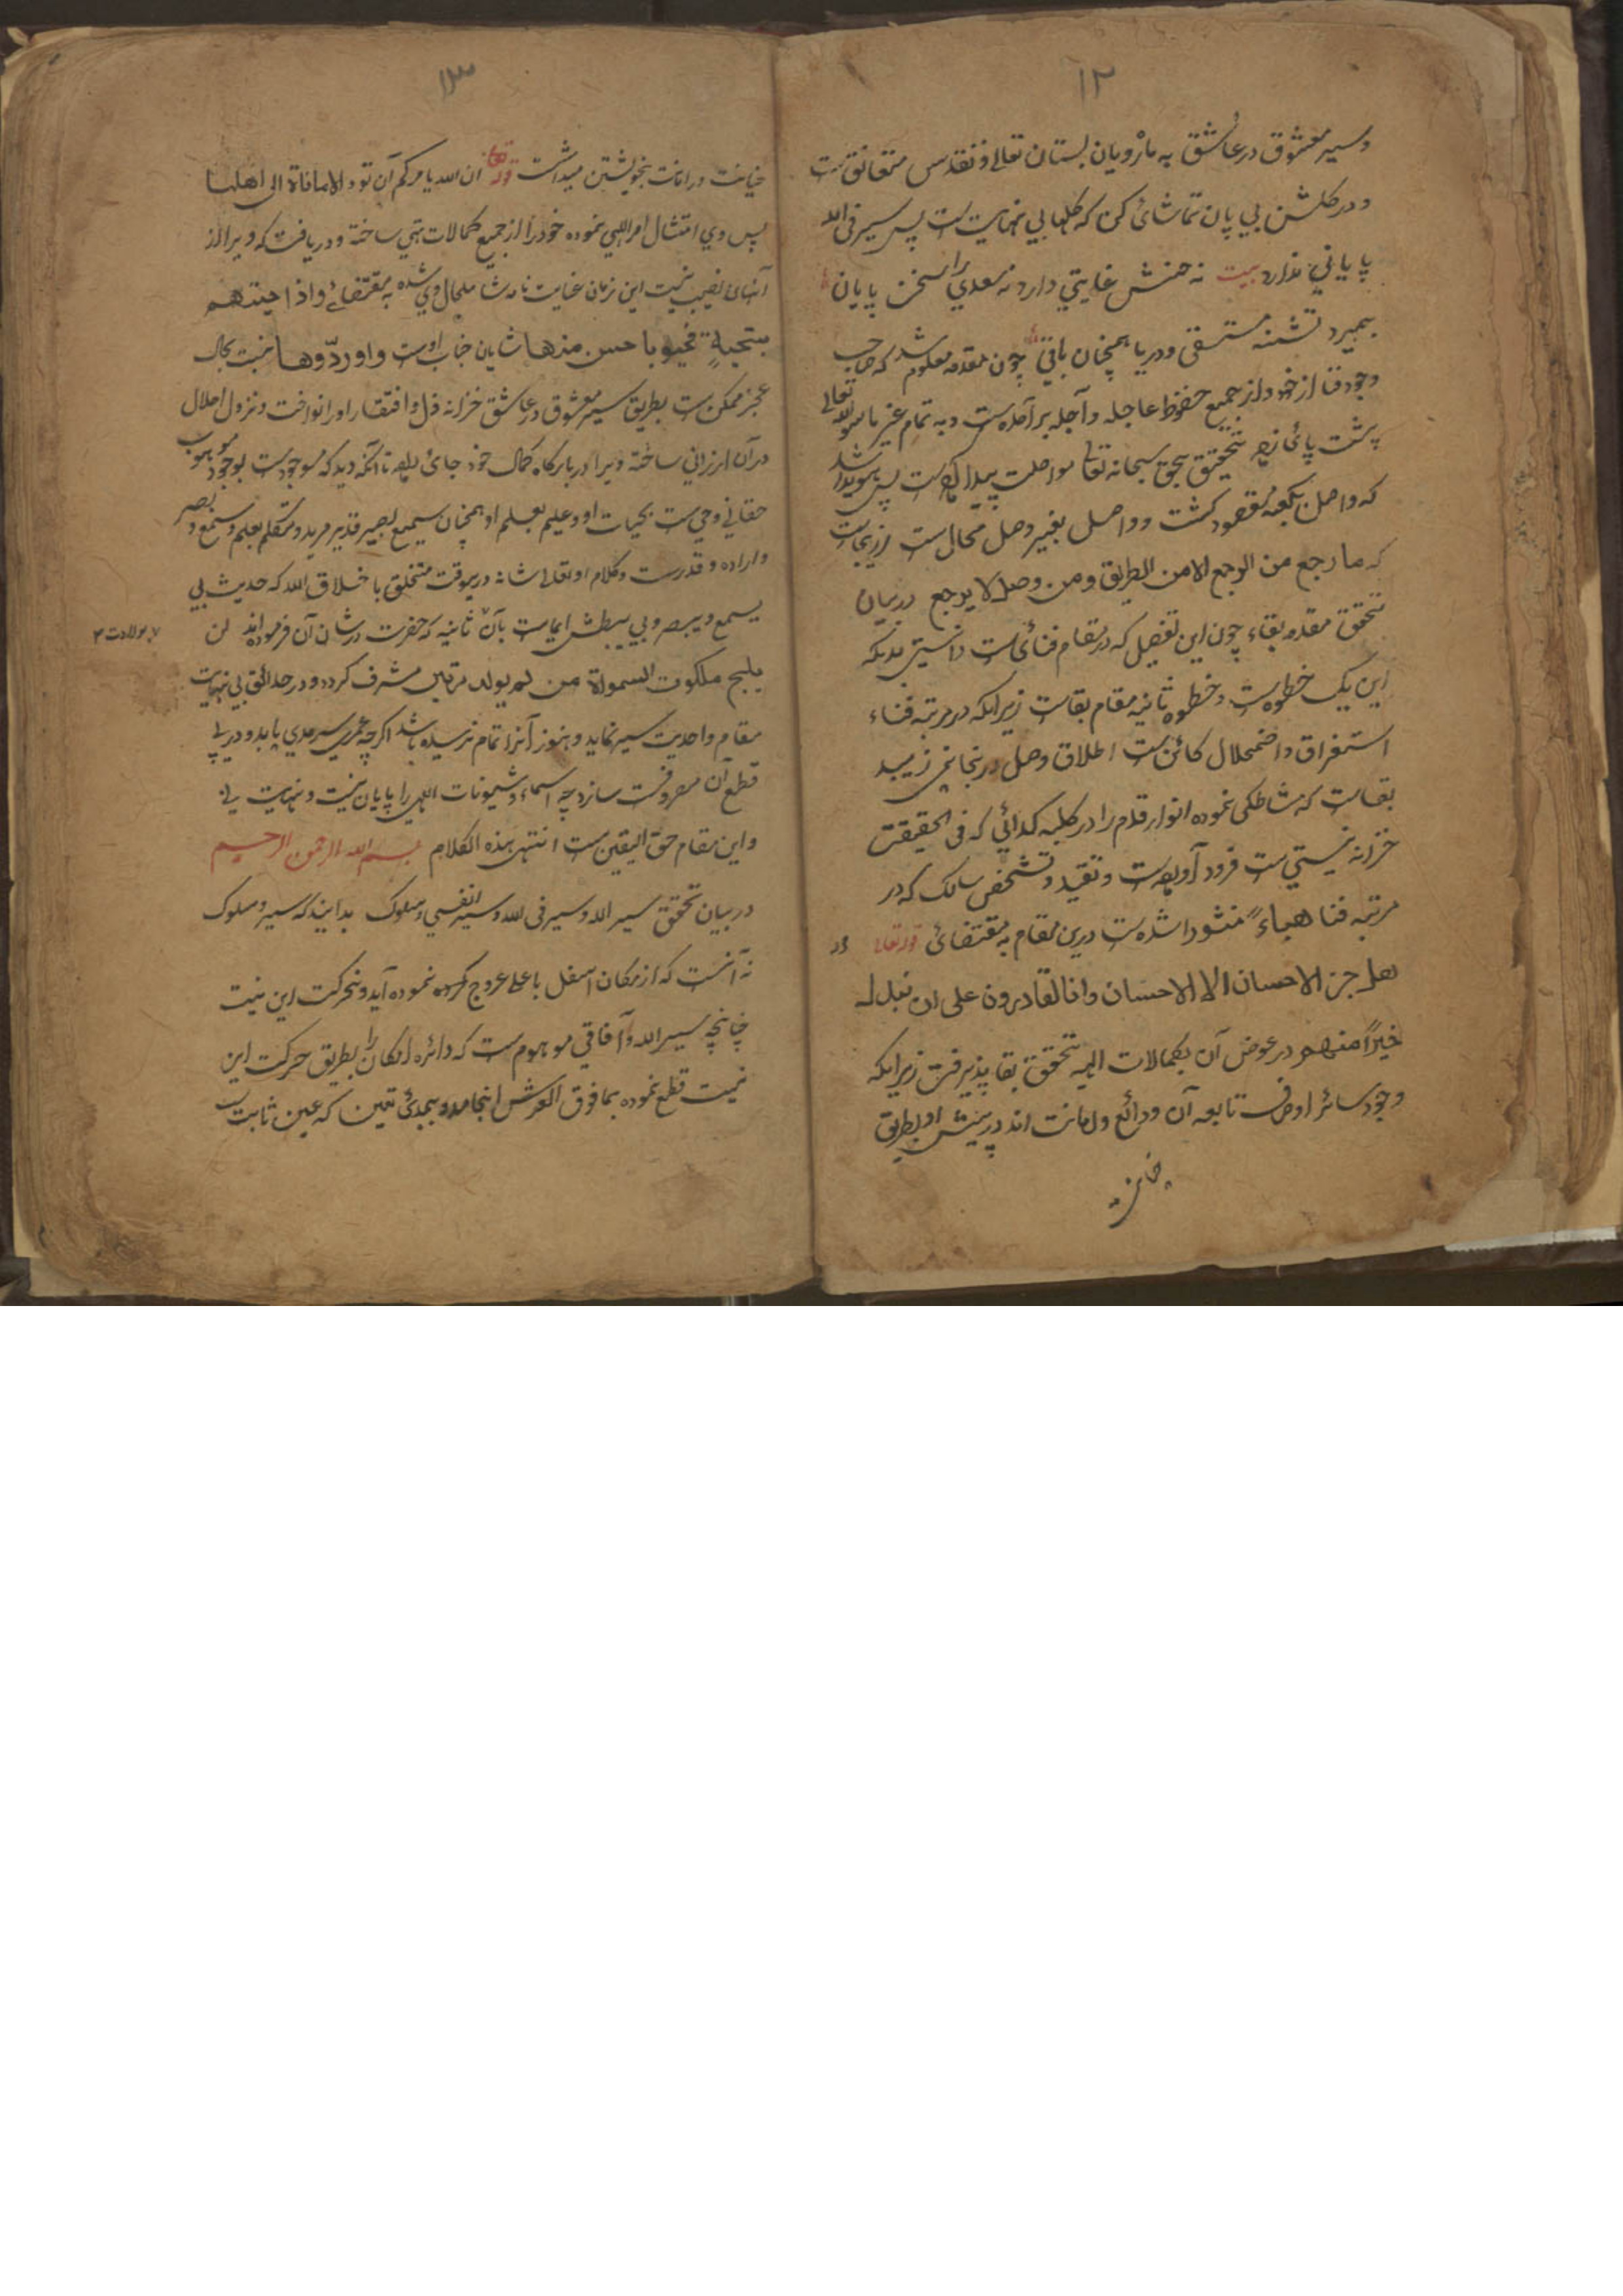 ۱۲
وسیر معشوق در عاشق به ماه رویان بستان تعالی و تقدس متعانق ست
و در گلشن بی پایان تماشائ کن که گلهای بی نهایت ست پس سیر فی الله
پایانی ندارد بیت نه حسنش غایتی دارد نه سعدی را سخن پایان
بمیرد تشنه مستسقی و دریا همچنان باقی چون مقدمه معلوم شد که صاحب
وجود فنا از خود و از جمیع حظوظ عاجله و آجله بر آمده ست و به تمام غیر ما سوی الله تعالی
پشت پائ زده بتحقیق بحق سبحانه تعالی مواصلت پیدا کرده ست پس هویدا شد
که واصل بکعبه مقصود گشت و واصل بغیر وصل محال ست ازینجاست
که ما رجع من الرجع الا من الطریق و من وصل لا یرجع در بیان
تحقق مقدمه بقاء چون این تفصیل که در مقام فنائ ست دانستی بدانکه
این یک خطوه ست و خطوه ثانیه مقام بقاست زیرانکه در مرتبه فناء
استغراق و اضمحلال کائن ست اطلاق وصل در ینجا نمی زیبد
بقاست که مشاطگی نموده انوار قدم را در کلبه گدائی که فی الحقیقت
خزانه نیستی ست فرود آورده ست و تقید و تشخص سالک که در
مرتبه فنا هباءً منثورا شده ست درین مقام به مقتضائ قوله تعالی
هل جزا الاحسان الا الاحسان وانا لقادرون علی ان نبدل
خیراً منهم در عوض آن بکمالات الهیه تحقق بقا پذیرفت زیرانکه
وجود سائر اوصاف تابعه آن ودائع و امانت اند در پیش او بطریق
خیانت
۱۳
خیانت در امانت بخویشتن میداشت قوله تعالی ان الله یامرکم ان تودوا الامانات الی اهلها
پس وی امتثال امر الهی نموده خود را از جمیع کمالات تهی ساخته و دریافت که ویرا از
آنهای نصیب نیست این زمان عنایت نامه شامل حال وی شده به مقتضائ واذا حییتم
بتحیةٍ فحیوا باحسن منها شایان جناب اوست و او ردّوها نسبت بحال
عجز ممکن ست بطریق سیر معشوق در عاشق خزانه ذل و افتقار او را نواخت و نزول اجلال
در آن ارزانی ساخته ویرا در بارگاه کمال خود جائ داده تا آنکه دید که موجود ست بوجود موهوب
حقانی و حی ست بحیات او و علیم بعلم او همچنان سمیع بصیر قدیر مرید و متکلم بعلم و سمع و بصر
و اراده و قدرت و کلام او تعالی شانه درینوقت متخلق باخلاق الله که حدیث بی
یسمع و یبصر و بی یبطش ایماست بآن ثانیه که حضرت در شان آن فرموده اند لن
یلج ملکوت السمواة من لم یولد مرتین مشرف گردد و در حدائق بی نهایت
مقام واحدیت سیر نماید و هنوز آنرا تمام نرسیده باشد اگرچه عمری سرمدی یابد و در پی
قطع آن مصروفت سازد چه اسماء و شیونات الهی را پایان نیست و نهایت نی
و این مقام حق الیقین ست انتهی هذه الکلام بسم الله الرحمن الرحیم
در بیان تحقق سیر الله و سیر فی الله و سیر انفسی و سلوک بدانیدکه سیر و سلوک
نه آنست که از مکان اسفل باعلی عروج کرده نموده آید و متحرکت این نیت
چنانچه سیر الله و آفاقی موهوم ست که دائره امکان را بطریق حرکت این
نیت قطع نموده بما فوق العرش انجامد و بمبدئ تعین که عین ثابت ست